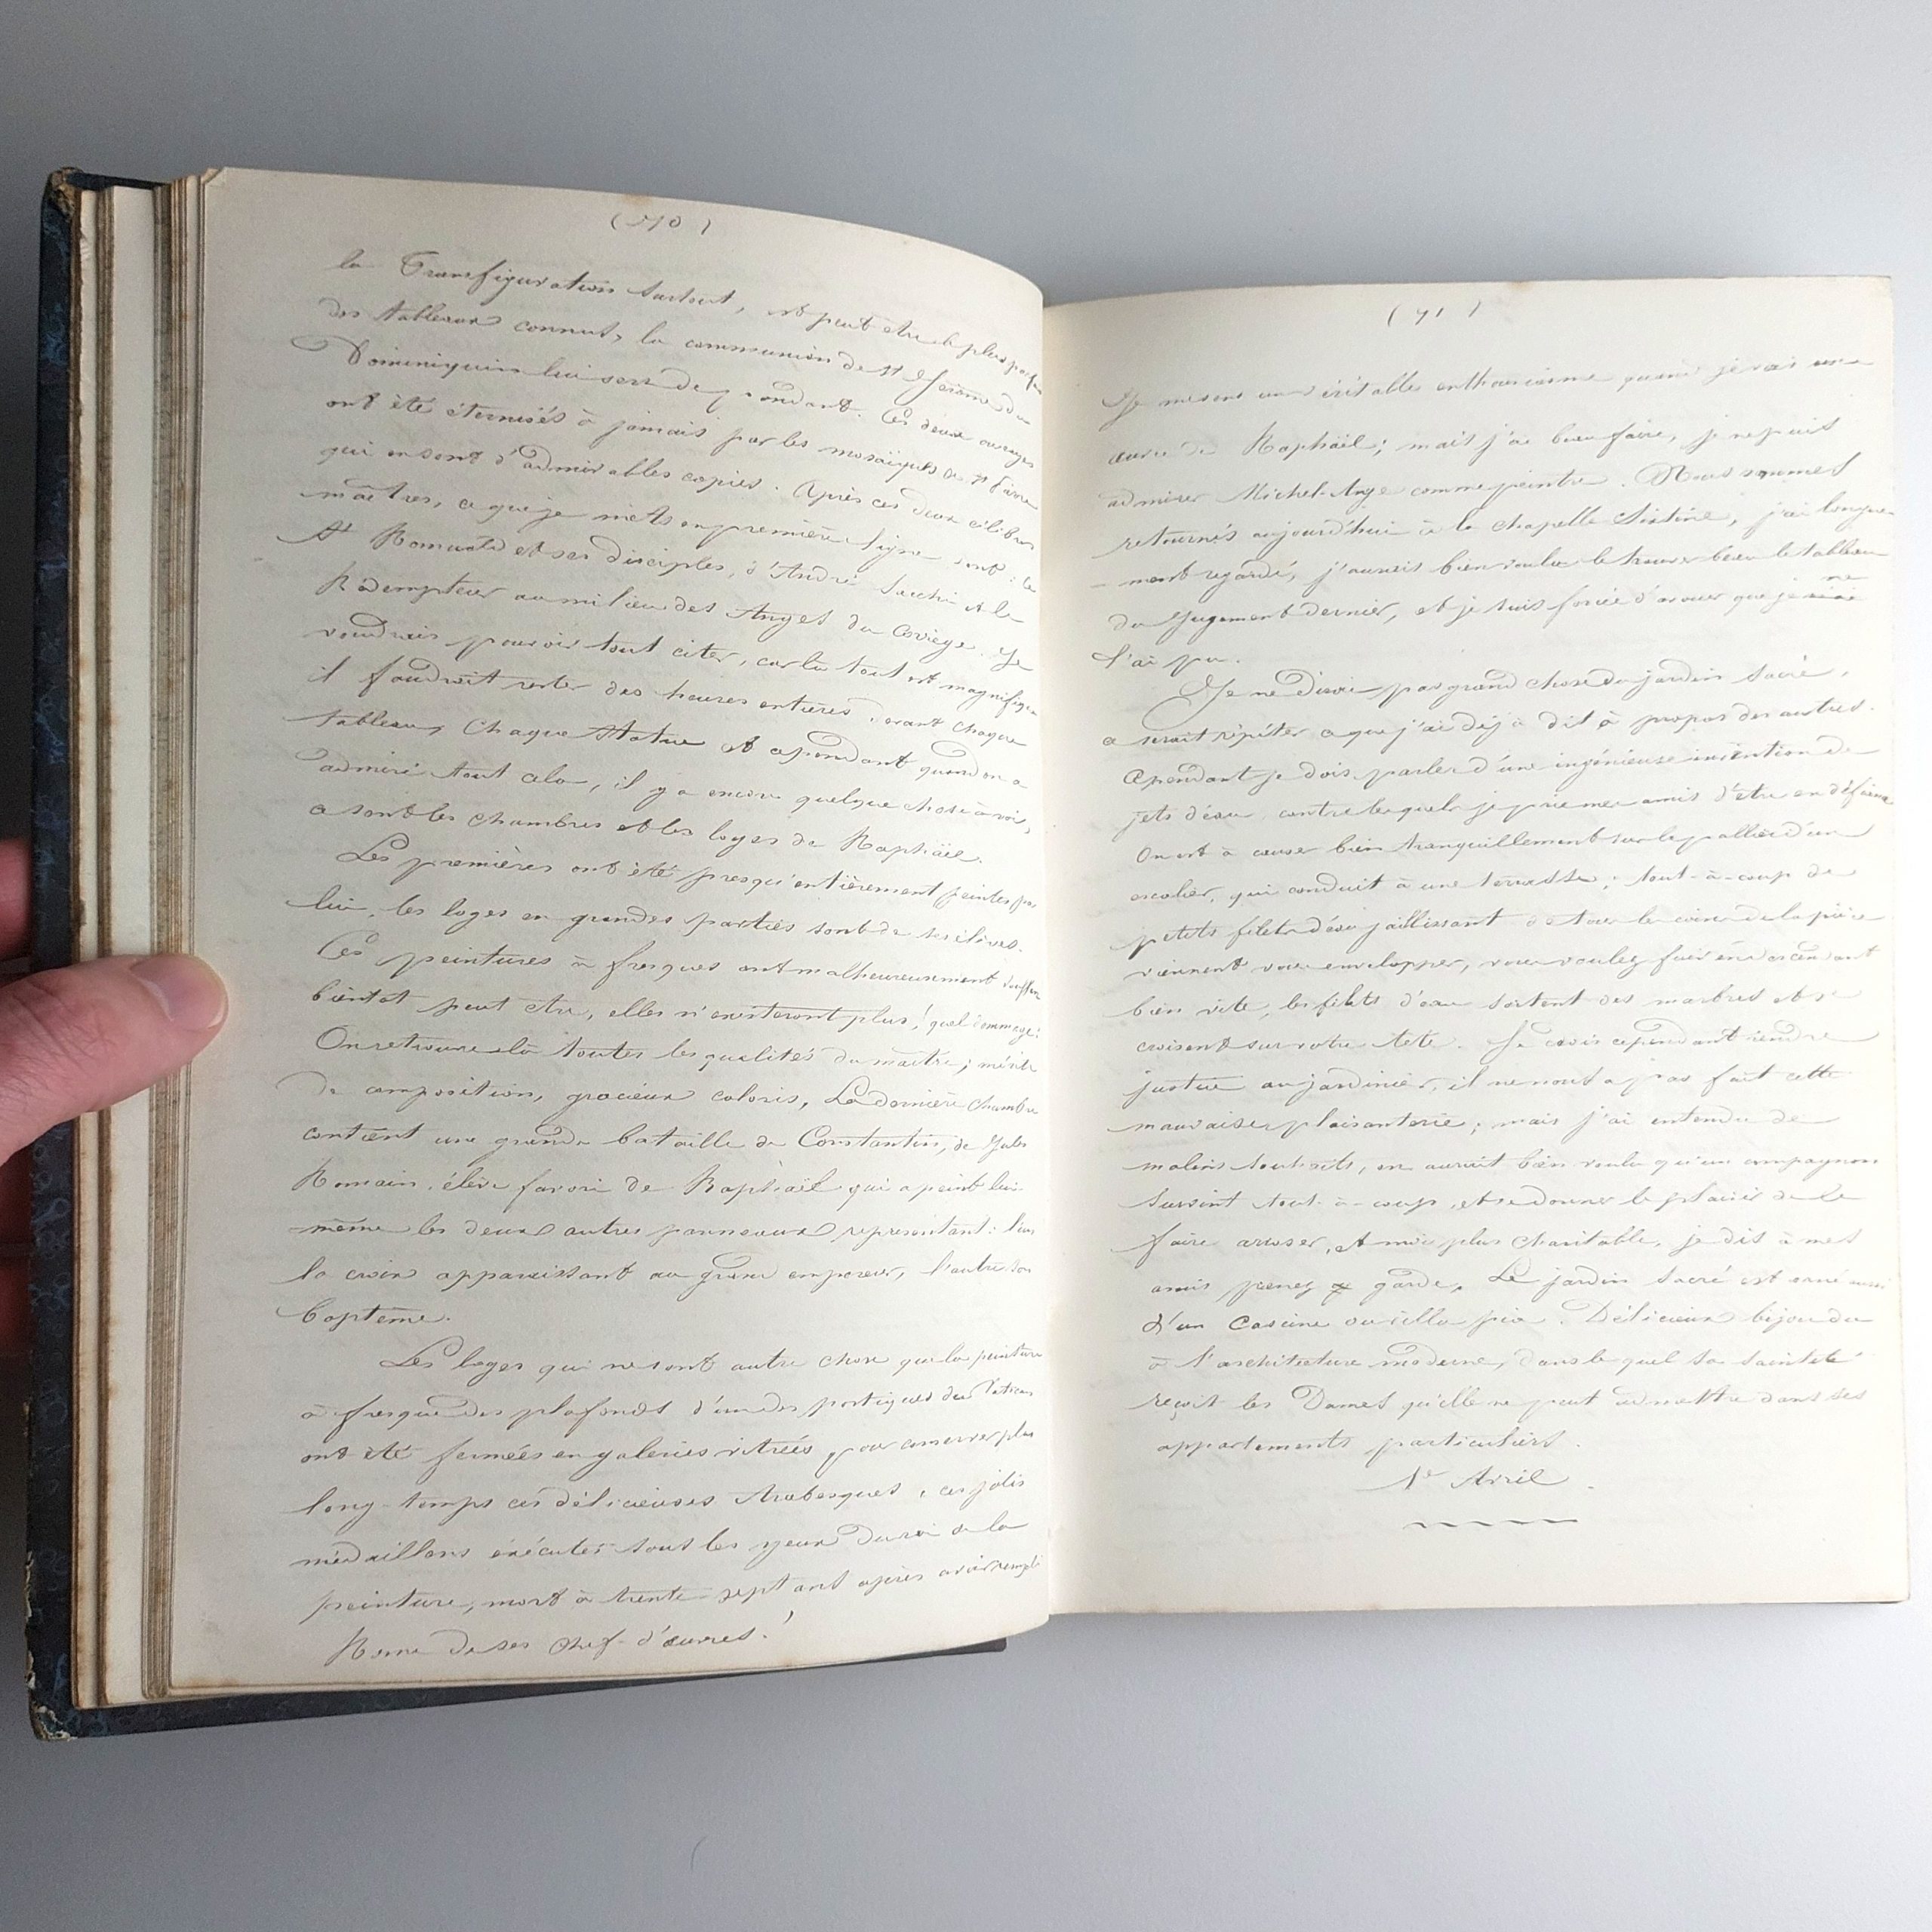 (70)
la Transfiguration surtout, est peut etre le plus parfait
des tableaux connus, la communion de St Jérome du
Dominiquin lui sert de pendant. Ces deux ouvrages
ont été éternisés à jamais par les mosaïques de St Pierre
qui en sont d'admirables copies. Après ces deux célèbres
maîtres, ce que je mets en première ligne sont : le
St Romuald et ses disciples, d'André Sacchi et le
Rédempteur au milieu des Anges du Corrège. Je
voudrais pouvoir tout citer, car là tout est magnifique
il faudrait rester des heures entières devant chaque
tableau, chaque statue et cependant quand on a
admiré tout cela, il y a encore quelque chose à voir,
ce sont les chambres et les loges de Raphäel.
Les premières ont été presqu'entièrement peintes par
lui, les loges en grandes parties sont de ses élèves.
Ces peintures à fresques ont malheureusement souffert
bientôt peut etre, elles n'existeront plus! quel dommage!
On retrouve là toutes les qualités du maitre; mérite
de composition, gracieux coloris, La dernière chambre
contient une grande bataille de Constantin, de Jules
Romain, élève favori de Raphäel qui a peint lui-
même les deux autres panneaux représentant : l'un
la croix apparaissant au grand empereur, l'autre son
baptême.
Les loges qui ne sont autre chose que la peinture
à fresque des plafonds d'un des portiques du Vatican
ont été fermées en galeries vitrées pour conserver plus
long-temps ces délicieuses Arabesques, ces jolis
médaillons éxécutés sous les yeux du roi de la
peinture, mort à trente-sept ans après avoir rempli
Rome de ses chef-d'œuvres!
(71)
Je me sens un véritable enthousiasme quand je vois une
œuvre de Raphäel; mais j'ai beau faire, je ne puis
admirer Michel-Ange comme peintre. Nous sommes
retournés aujourd'hui à la chapelle Sixtine, j'ai longue-
-ment regardé, j'aurais bien voulu le trouver beau le tableau
du Jugement dernier, et je suis forcée d'avouer que je ne
l'ai pu.
Je ne dirai pas grand chose du jardin sacré,
ce serait répéter ce que j'ai déjà dit à propos des autres.
Cependant je dois parler d'une ingénieuse invention de
jets d'eau, contre lesquels je prie mes amis d'être en défiance
On est à causer bien tranquillement sur le pallier d'un
escalier, qui conduit à une terrasse; tout-à-coup de
petits filets d'eau jaillissant de tous les coins de la pierre
viennent vous envelopper, vous voulez fuir en descendant
bien vite, les filets d'eau sortent des marbres et se
croisent sur votre tete. Je dois cependant rendre
justice au jardinier, il ne nous a pas fait cette
mauvaise plaisanterie; mais j'ai entendu de
malins souhaits, on aurait bien voulu qu'un compagnon
survint tout-à-coup, et se donner le plaisir de le
faire arroser, et moi plus charitable, je dis à mes
amis prenez garde. Le jardin sacré est orné aussi
d'un Casine ou villa pia. Délicieux bijou dû
à l'architecture moderne, dans lequel sa sainteté
reçoit les Dames qu'elle ne peut admettre dans ses
appartements particuliers.
1er Avril.